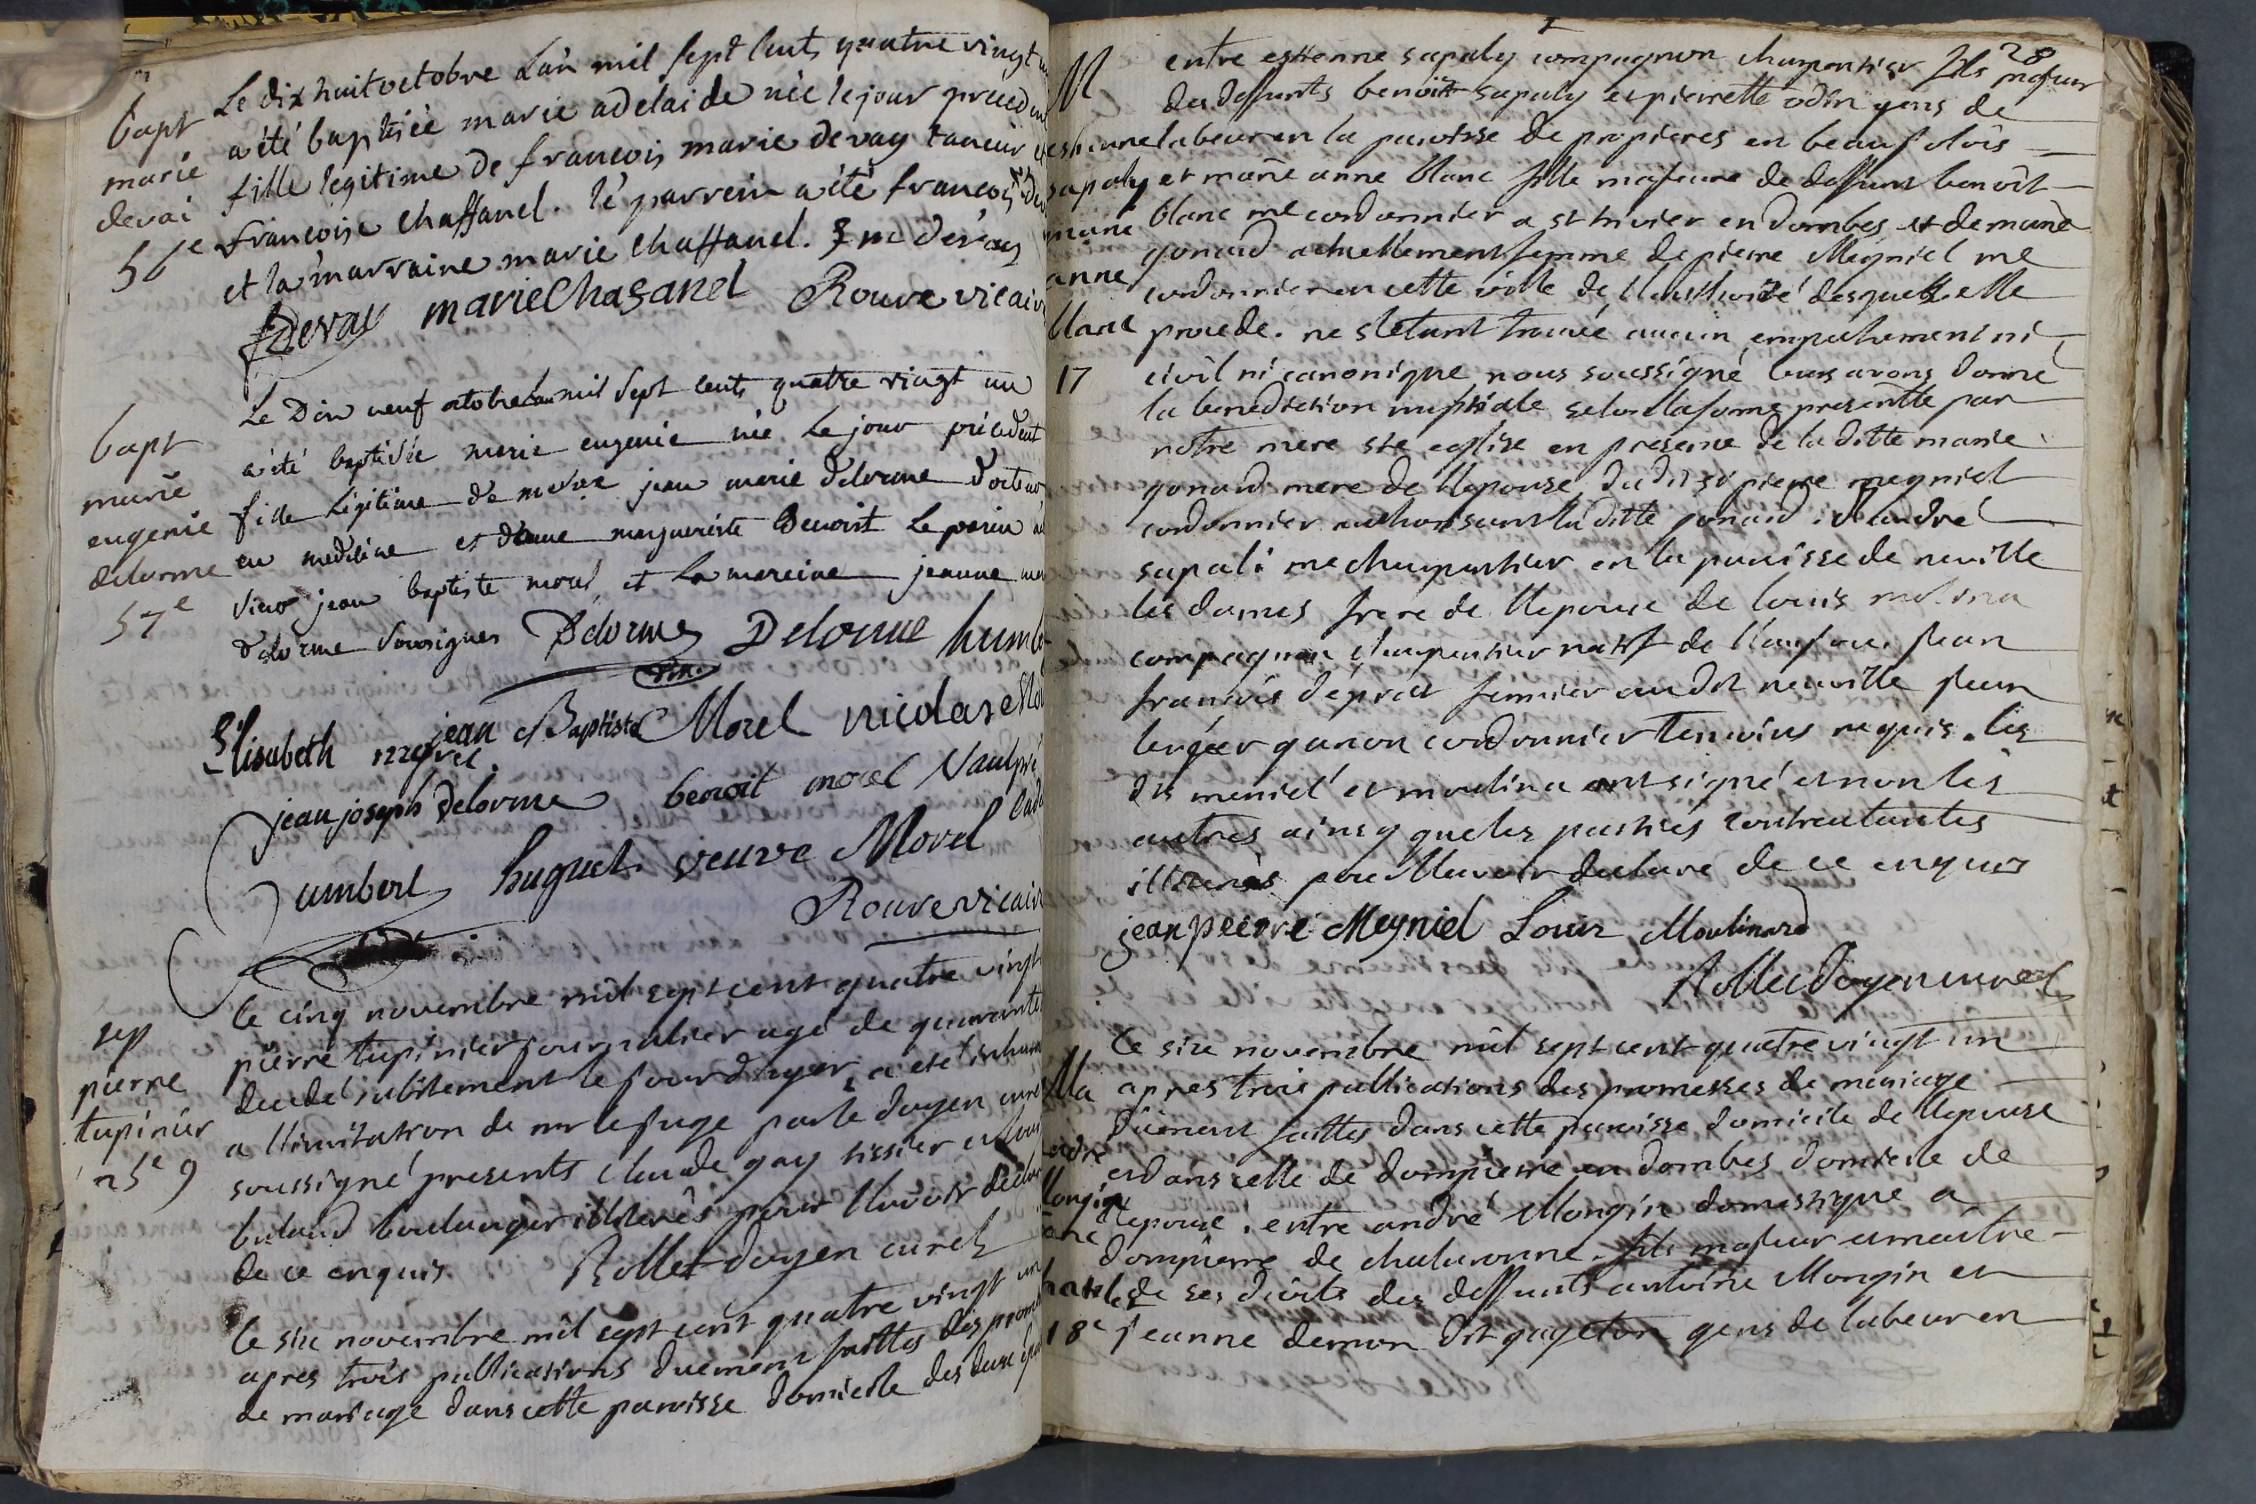 bapt
marie
devai
56e
Le dix huit octobre L'an mil sept cents quatre vingt un
a été baptisée marie adelaide née le jour preceden
fille legitime de francois marie devay taneur et
francoise Chaffanel. le parrein a été francois
et la marraine marie Chaffanel. f m devay
fDevay marieChasanel Rouve vicaire
bapt
marie
eugenie
delorme
57e
Le Dix neuf octobre L'an mil Sept cents quatre vingt un
a été baptisée marie eugenie née Le jour précédent
fille Légitime de jean marie Delorme Docteur
en medecine et Dame marguerite Benoist Le parein
jean baptiste morel et La mareine jeanne
Delorme Soussignes Delorme Delorme humb
Elisabeth jean Baptiste Morel nicolas
jean joseph Delorme benoit morel Vaulpré
umbert huguet veuve Morel
Rouve vicaire
sep
pierre
tupinier
25e 9
le cinq novembre mil sept cent quatre vingt
pierre tupinier journalier agé de quarante
decedé subitement le jour d'hyer, a eté inhumé
a l'invitation de mr le juge par le doyen curé
soussigné presents claude gay tissier et
boulanger illiterés pour l'avoir declaré
de ce enquis. Rollet doyen curé
le six novembre mil sept cent quatre vingt un
apres trois publications duement faittes des promes
de mariage dans cette paroisse domicile des deux
28
M
estienne
sapaly
marie
anne
blanc
17
entre estienne sapaly compagnon charpentier fils majeur
des deffunts benoitt sapaly et pierrette odin gens de
labeur en la paroisse de propieres en beaujolois
et marie anne blanc fille majeure de deffunt benoît
blanc me cordonnier a st trivier en dombes et de marie
gonard actuellement femme de pierre Meyniel me
cordonnier en cette ville de l'authorité desquels elle
procede. ne s'etant trouvé aucun empechement ni
civil ni canonique nous soussigné leurs avons donné
la benediction nuptiale selon la forme presentte par
notre mere ste eglise en presence de la ditte marie
gonard mere de l'epouse, du dit sr pierre meyniel
cordonnier authorisant la ditte gonard, d'andré
sapali me charpentier en la paroisse de neuville
les dames frere de l'epoux de louis
compagnon charpentier natif de jean
francois fermier au dit neuville jean
cordonnier temoins requis. les
dits meniel et moulina ont signé et non les
autres ainsy que les parties contractantes
illiterés pour l'avoir declaré de ce enquis
jean pierre Meyniel Louis Moulinard
Rollet doyen curé
Ma
andré
Mongin
18e
Le six novembre mil sept cent quatre vingt un
apres trois publications des promesses de mariage
duement faittes dans cette paroisse domicile de l'epouse
et dans celle de dompierre en dombes domicile de
l'epoux: entre andré Mongin domestique a
dompierre de chalaronne. fils majeur et maitre
de ses droits des deffunts antoine Mongin et
jeanne demon dit gayeton gens de labeur en